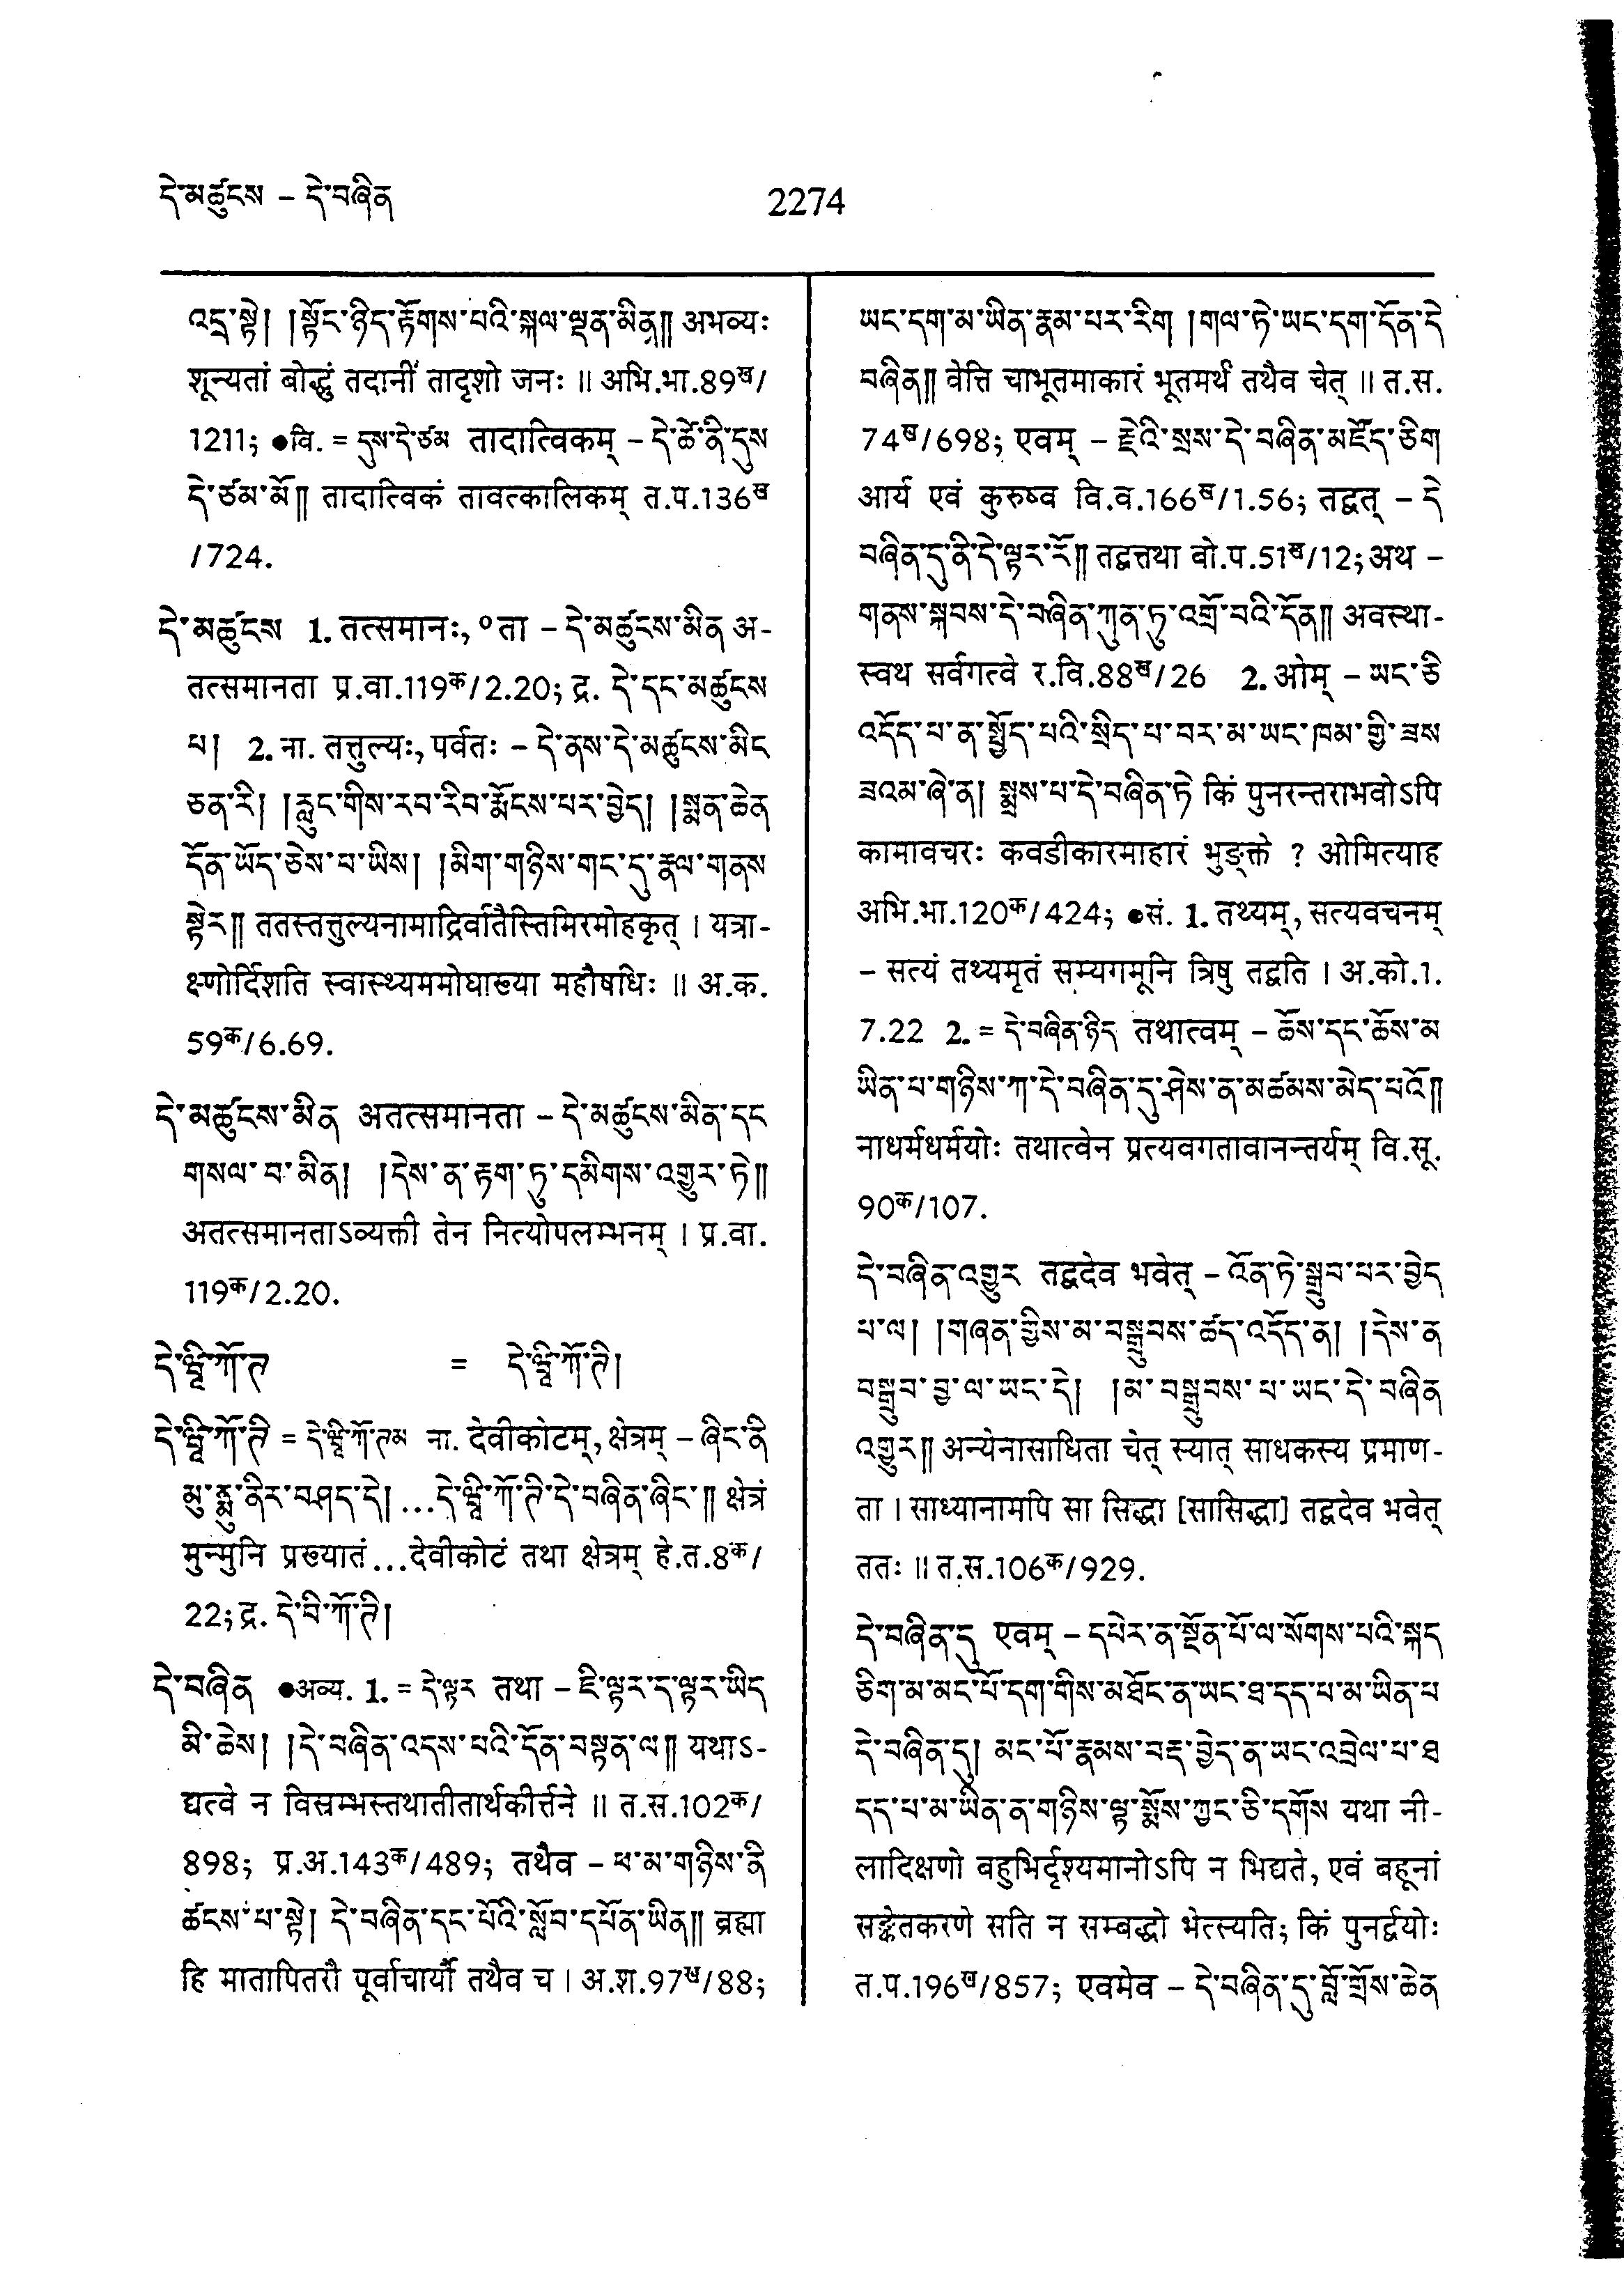 དེ་མཚུངས – དེ་བཞིན
2274
འདྲ་སྟེ། །སྟོང་ཉིད་རྟོགས་པའི་སྐལ་ལྡན་མིན༎ अभव्यः
शून्यतां बोद्धुं तदानीं तादृशो जनः ॥ अभि.भा.89ख/
1211; ●वि. = དུས་དེ་ཙམ तादात्विकम् – དེ་ཚེ་ནི་དུས
དེ་ཙམ་མོ༎ तादात्विकं तावत्कालिकम् त.प.136ख
/724.
དེ་མཚུངས 1. तत्समानः, ॰ता – དེ་མཚུངས་མིན अ-
तत्समानता प्र.वा.119क/2.20; द्र. དེ་དང་མཚུངས
པ། 2. ना. तत्तुल्यः, पर्वतः – དེ་ནས་དེ་མཚུངས་མིང
ཅན་རི། །རླུང་གིས་རབ་རིབ་རྨོངས་པར་བྱེད། །སྨན་ཆེན
དོན་ཡོད་ཅེས་པ་ཡིས། །མིག་གཉིས་གང་དུ་རྣལ་གནས
སྟེར༎ ततस्तत्तुल्यनामाद्रिर्वातैस्तिमिरमोहकृत् । यत्रा-
क्ष्णोर्दिशति स्वास्थ्यममोघाख्या महौषधिः ॥ अ.क.
59क/6.69.
དེ་མཚུངས་མིན अतत्समानता – དེ་མཚུངས་མིན་དང
གསལ་བ་མིན། །དེས་ན་རྟག་ཏུ་དམིགས་འགྱུར་ཏེ༎
अतत्समानताऽव्यक्ती तेन नित्योपलम्भनम् । प्र.वा.
119क/2.20.
དེ་ཝཱི་ཀོ་ཊ = དེ་ཝཱི་ཀོ་ཊི།
དེ་ཝཱི་ཀོ་ཊི = དེ་ཝཱི་ཀོ་ཊམ ना. देवीकोटम्, क्षेत्रम् – ཞིང་ནི
མུ་ནྨུ་ནིར་བཤད་དེ། ...དེ་ཝཱི་ཀོ་ཊི་དེ་བཞིན་ཞིང་༎ क्षेत्रं
मुन्मुनि प्रख्यातं...देवीकोटं तथा क्षेत्रम् हे.त.8क/
22; द्र. དེ་བི་ཀོ་ཊི།
དེ་བཞིན ●अव्य. 1. = དེ་ལྟར तथा – ཇི་ལྟར་ད་ལྟར་ཡིད
མི་ཆེས། །དེ་བཞིན་འདས་པའི་དོན་བསྟན་ལ༎ यथाऽ-
द्यत्वे न विस्रम्भस्तथातीतार्थकीर्त्तने ॥ त.स.102क/
898; प्र.अ.143क/489; तथैव – ཕ་མ་གཉིས་ནི
ཚངས་པ་སྟེ། དེ་བཞིན་དང་པོའི་སློབ་དཔོན་ཡིན༎ ब्रह्मा
हि मातापितरौ पूर्वाचार्यौ तथैव च । अ.श.97ख/88;
ཡང་དག་མ་ཡིན་རྣམ་པར་རིག །གལ་ཏེ་ཡང་དག་དོན་དེ
བཞིན༎ वेत्ति चाभूतमाकारं भूतमर्थं तथैव चेत् ॥ त.स.
74ख/698; एवम् – རྗེའི་སྲས་དེ་བཞིན་མཛོད་ཅིག
आर्य एवं कुरुष्व वि.व.166ख/1.56; तद्वत् – དེ
བཞིན་དུ་ནི་དེ་ལྟར་རོ༎ तद्वत्तथा बो.प.51ख/12; अथ –
གནས་སྐབས་དེ་བཞིན་ཀུན་ཏུ་འགྲོ་བའི་དོན༎ अवस्था-
स्वथ सर्वगत्वे र.वि.88ख/26 2. ओम् – ཡང་ཅི
འདོད་པ་ན་སྤྱོད་པའི་སྲིད་པ་བར་མ་ཡང་ཁམ་གྱི་ཟས
ཟའམ་ཞེ་ན། སྨྲས་པ་དེ་བཞིན་ཏེ किं पुनरन्तराभवोऽपि
कामावचरः कवडीकारमाहारं भुङ्क्ते ? ओमित्याह
अभि.भा.120क/424; ●सं. 1. तथ्यम्, सत्यवचनम्
– सत्यं तथ्यमृतं सम्यगमूनि त्रिषु तद्वति । अ.को.1.
7.22 2. = དེ་བཞིན་ཉིད तथात्वम् – ཆོས་དང་ཆོས་མ
ཡིན་པ་གཉིས་ཀ་དེ་བཞིན་དུ་ཤེས་ན་མཚམས་མེད་པའོ༎
नाधर्मधर्मयोः तथात्वेन प्रत्यवगतावानन्तर्यम् वि.सू.
90क/107.
དེ་བཞིན་འགྱུར तद्वदेव भवेत् – འོན་ཏེ་སྒྲུབ་པར་བྱེད
པ་ལ། །གཞན་གྱིས་མ་བསྒྲུབས་ཚད་འདོད་ན། །དེས་ན
བསྒྲུབ་བྱ་ལ་ཡང་དེ། །མ་བསྒྲུབས་པ་ཡང་དེ་བཞིན
འགྱུར༎ अन्येनासाधिता चेत् स्यात् साधकस्य प्रमाण-
ता । साध्यानामपि सा सिद्धा [सासिद्धा] तद्वदेव भवेत्
ततः ॥ त.स.106क/929.
དེ་བཞིན་དུ एवम् – དཔེར་ན་སྔོན་པོ་ལ་སོགས་པའི་སྐད
ཅིག་མ་མང་པོ་དག་གིས་མཐོང་ན་ཡང་ཐ་དད་པ་མ་ཡིན་པ
དེ་བཞིན་དུ། མང་པོ་རྣམས་བརྡ་བྱེད་ན་ཡང་འབྲེལ་པ་ཐ
དད་པ་མ་ཡིན་ན་གཉིས་ལྟ་སྨོས་ཀྱང་ཅི་དགོས यथा नी-
लादिक्षणो बहुभिर्दृश्यमानोऽपि न भिद्यते, एवं बहूनां
सङ्केतकरणे सति न सम्बद्धो भेत्स्यति; किं पुनर्द्वयोः
त.प.196ख/857; एवमेव – དེ་བཞིན་དུ་བློ་གྲོས་ཆེན